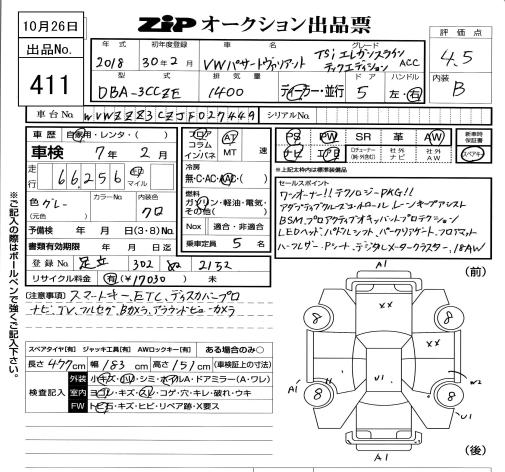 10月26日
ZIP オークション出品票
出品No.
411
年式 初年度登録 車名 グレード
2018 30年2月 VWパサートヴァリアント TSiエレガンスライン テックエディション ACC
評価点
4.5
型式 排気量 ドア ハンドル
DBA-3CCZE 1400 ディーラー・並行 5 左・右
内装
B
車台No. WVWZZZ3CZJE027449 シリアルNo.
車歴 自家用・レンタ・( )
車検 7年2月
走行 66,256 km マイル
色 グレー カラーNo. 内装色 クロ
(元色)
予備検 年 月 日(3・8)No.
書類有効期限 年 月 日
登録No. 足立 302 ぬ 2152
リサイクル料金 有(¥17030) 未
フロア コラム インパネ
AT MT 速
冷房
無・C・AC・AAC・( )
燃料
ガソリン・軽油・電気・その他( )
Nox 適合・非適合
乗車定員 5 名
PS PW SR 革 AW
ナビ エアB ロデューナー(純・外含む) 社外ナビ 社外AW
新車時保証書
スペアキー
※上記太枠内は標準装備
セールスポイント
ワンオーナー!! テクノロジーPKG!!
アダプティブクルーズコントロール レーンキープアシスト
BSM、プロアクティブオキュパントプロテクション
LEDヘッド、パドルシフト、パークリアゲート、フロアマット
ハーフレザー、Pシート、デジタルメータークラスター、18AW
注意事項 スマートキー、ETC、ディスカバープロ
ナビ、TV、フルセグ、Bカメラ、アラウンドビューカメラ
スペアタイヤ[有] ジャッキ工具[有] AWロックキー[有] ある場合のみ○
長さ 477cm 幅 183cm 高さ 151cm (車検証上の寸法)
検査記入
外装 小キズ・小凹・シミ・ホイルA・ドアミラー(A・ワレ)
室内 ヨゴレ・キズ・スレ・コゲ・穴・キレ・破れ・ウキ
FW トビ石・キズ・ヒビ・リペア跡・X要ス
※ご記入の際はボールペンで強くご記入下さい。
A1 (前)
XX
8 8
U1
XX
A1 8 8 W2
U1
A1 (後)